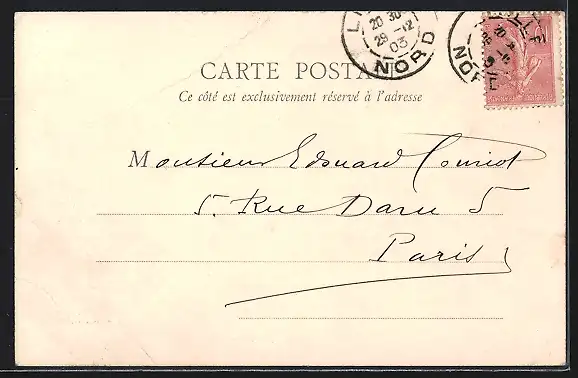 LILLE
20 30
29 -12
03
NORD
LILLE
NORD
CARTE POSTALE
Ce côté est exclusivement réservé à l'adresse
Monsieur Edouard
5. Rue Daru 5
Paris